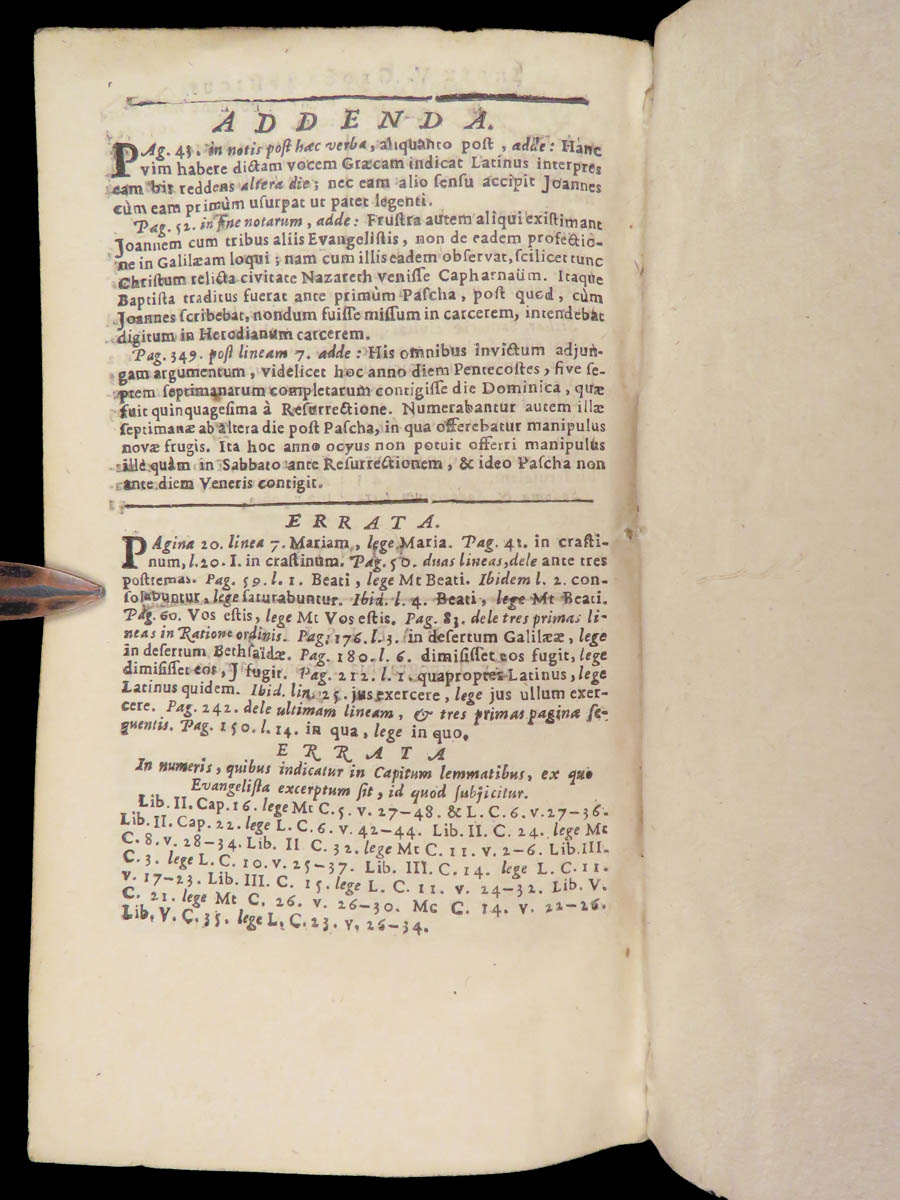 ADDENDA.
PAg. 43. in notis poſt hæc verba, aliquanto poſt, adde: Hanc
vim habere dictam vocem Græcam indicat Latinus interpres
eam bis reddens altera die; nec eam alio ſenſu accipit Joannes
cùm eam primùm uſurpat ut patet legenti.
Pag. 52. in fine notarum, adde: Fruſtra autem aliqui exiſtimant
Joannem cum tribus aliis Evangeliſtis, non de eadem profectio-
ne in Galilæam loqui; nam cum illis eadem obſervat, ſcilicet tunc
Chriſtum relicta civitate Nazareth veniſſe Capharnaüm. Itaque
Baptiſta traditus fuerat ante primùm Paſcha, poſt quod, cùm
Joannes ſcribebat, nondum fuiſſe miſſum in carcerem, intendebat
digitum in Herodianum carcerem.
Pag. 349. poſt lineam 7. adde: His omnibus invictum adjun-
gam argumentum, videlicet hoc anno diem Pentecoſtes, ſive ſe-
ptem ſeptimanarum completarum contigiſſe die Dominica, quæ
fuit quinquageſima à Reſurrectione. Numerabantur autem illæ
ſeptimanæ ab altera die poſt Paſcha, in qua offerebatur manipulus
novæ frugis. Ita hoc anno ocyus non potuit offerri manipulus
ille quàm in Sabbato ante Reſurrectionem, & ideo Paſcha non
ante diem Veneris contigit.
ERRATA.
PAgina 20. linea 7. Mariam, lege Maria. Pag. 41. in craſti-
num, l. 20. I. in craſtinum. Pag. 50. duas lineas, dele ante tres
poſtremas. Pag. 59. l. 1. Beati, lege Mt Beati. Ibidem l. 2. con-
ſolabuntur, lege ſaturabuntur. Ibid. l. 4. Beati, lege Mt Beati.
Pag. 60. Vos eſtis, lege Mt Vos eſtis. Pag. 83. dele tres primas li-
neas in Ratione ordinis. Pag. 176. l. 3. in deſertum Galilææ, lege
in deſertum Bethſaïdæ. Pag. 180. l. 6. dimiſiſſet eos fugit, lege
dimiſiſſet eos, J fugit. Pag. 212. l. 1. quapropter Latinus, lege
Latinus quidem. Ibid. lin. 25. jus exercere, lege jus ullum exer-
cere. Pag. 242. dele ultimam lineam, & tres primas paginæ ſe-
quentis. Pag. 150. l. 14. in qua, lege in quo.
ERRATA
In numeris, quibus indicatur in Capitum lemmatibus, ex quo
Evangeliſta excerptum ſit, id quod ſubjicitur.
Lib. II. Cap. 16. lege Mt C. 5. v. 27-48. & L. C. 6. v. 27-36.
Lib. II. Cap. 22. lege L. C. 6. v. 42-44. Lib. II. C. 24. lege Mt
C. 8. v. 28-34. Lib. II C. 32. lege Mt C. 11. v. 2-6. Lib. III.
C. 3. lege L. C. 10. v. 25-37. Lib. III. C. 14. lege L. C. 11.
v. 17-23. Lib. III. C. 15. lege L. C. 11. v. 24-32. Lib. V.
C. 21. lege Mt C. 26. v. 26-30. Mc C. 14. v. 22-26.
Lib. V. C. 35. lege L. C. 23. v. 26-34.